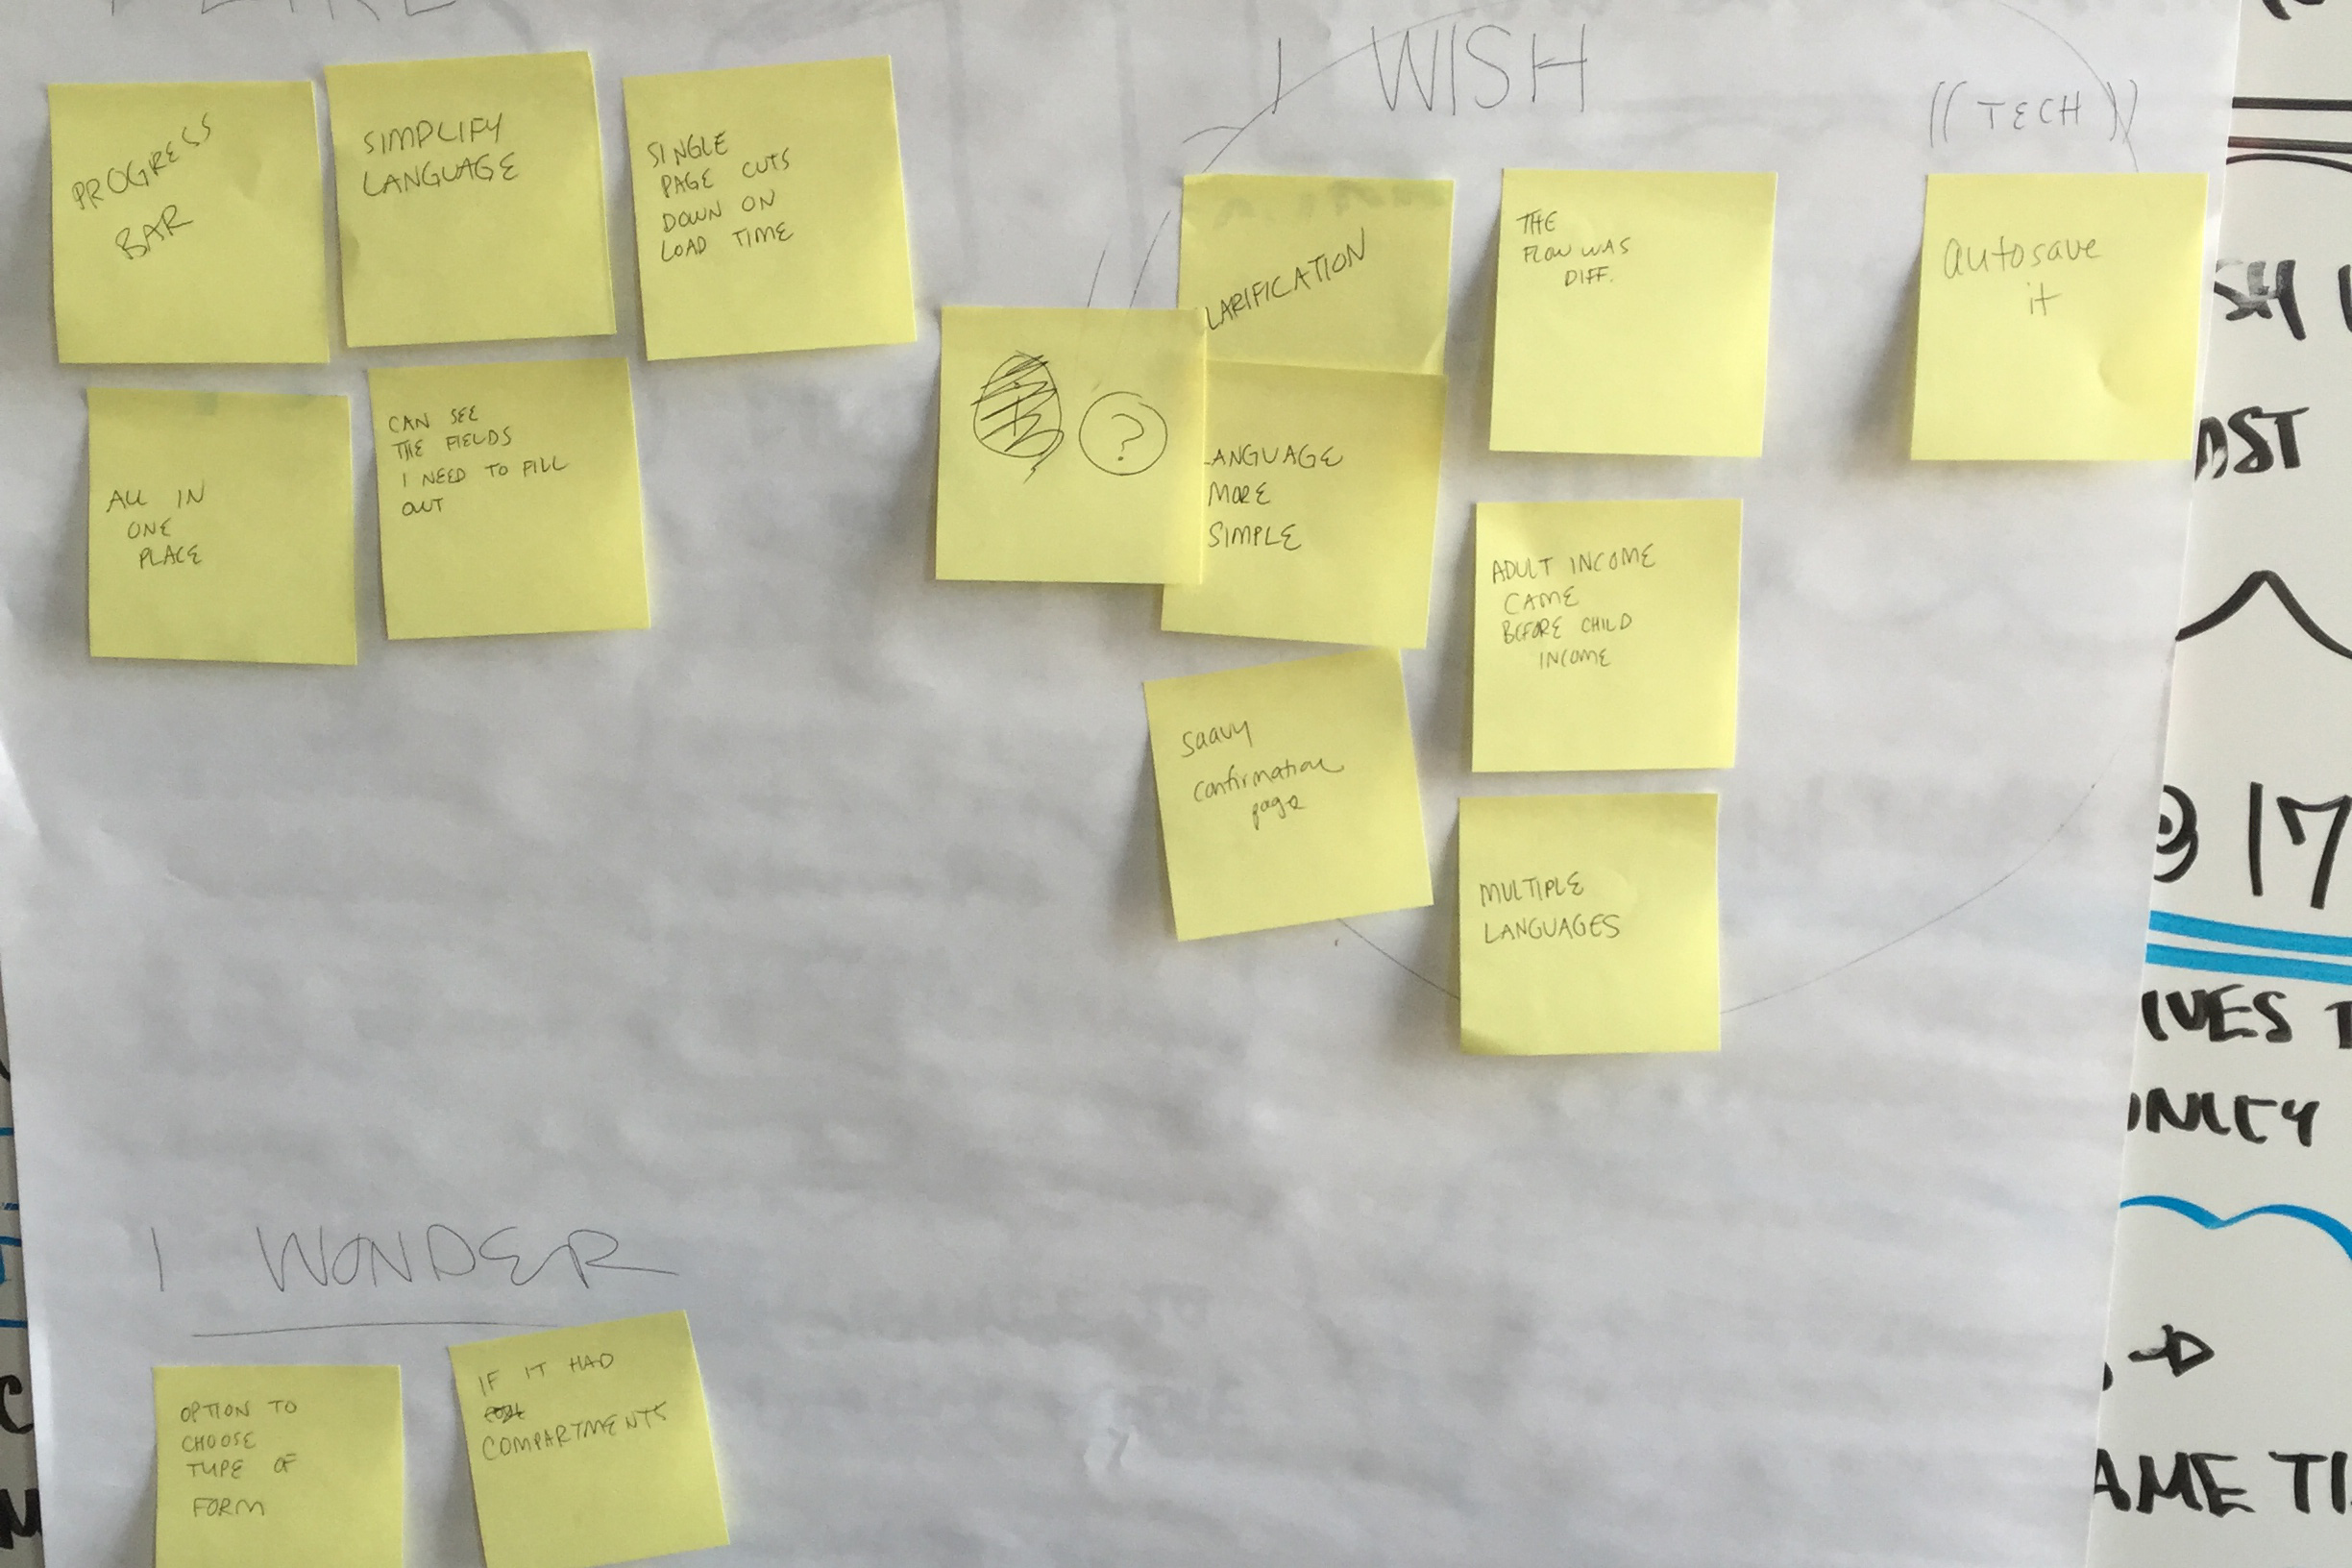 I WISH
(( TECH ))
PROGRESS
BAR
SIMPLIFY
LANGUAGE
SINGLE
PAGE CUTS
DOWN ON
LOAD TIME
ALL IN
ONE
PLACE
CAN SEE
THE FIELDS
I NEED TO FILL
OUT
?
LARIFICATION
LANGUAGE
MORE
SIMPLE
saavy
confirmation
page
THE
FLOW WAS
DIFF.
ADULT INCOME
CAME
BEFORE CHILD
INCOME
MULTIPLE
LANGUAGES
autosave
it
I WONDER
OPTION TO
CHOOSE
TYPE OF
FORM
IF IT HAD
COMPARTMENTS
SH
OST
@ 17
IVES T
ONLY
AME TI